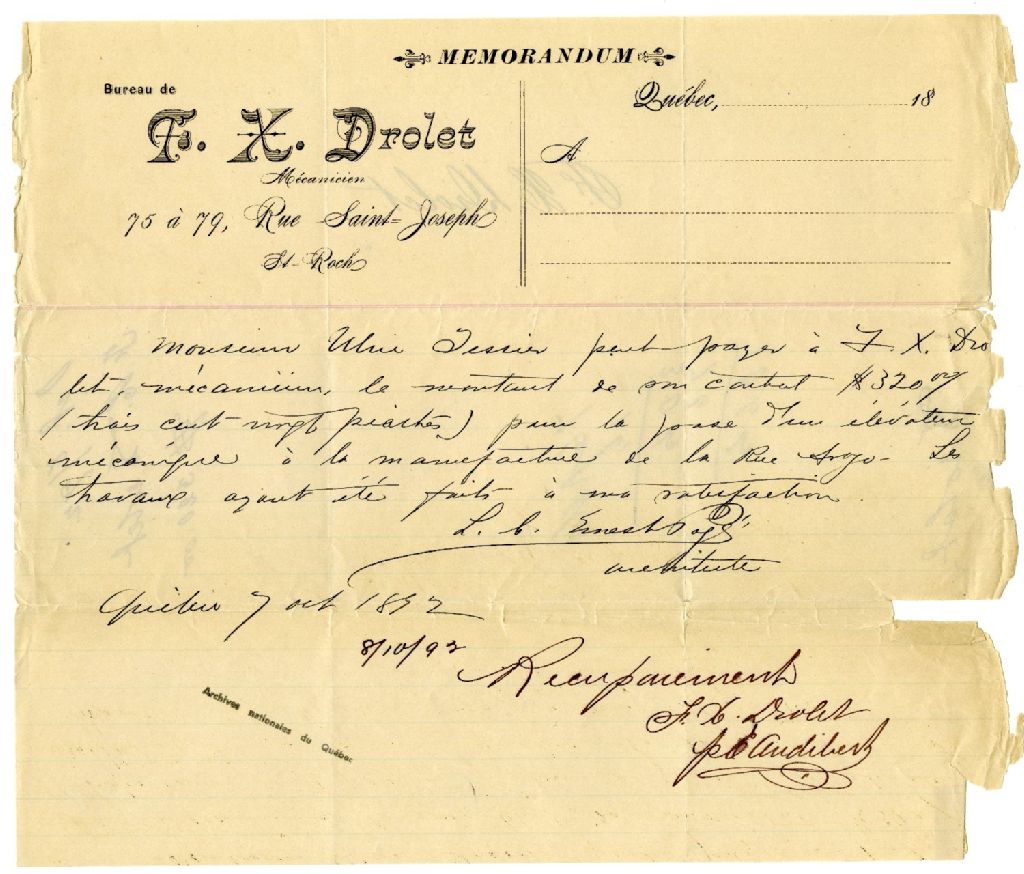 MEMORANDUM
Bureau de
F. X. Drolet
Mécanicien
75 à 79, Rue Saint-Joseph
St-Roch
Québec, 18
A
Monsieur Ulric Tessier peut payer à F. X. Dro
let, mécanicien, le montant de son contrat $320
(trois cent vingt piastres) pour la pose d'un élévateur
mécanique à la manufacture de la Rue Arago. Les
travaux ayant été faits à ma satisfaction.
L. C. Ernest Pagé
architecte
Québec 7 oct 1892
8/10/92
Recu paiement
F. X. Drolet
p E Audibert
Archives nationales du Québec